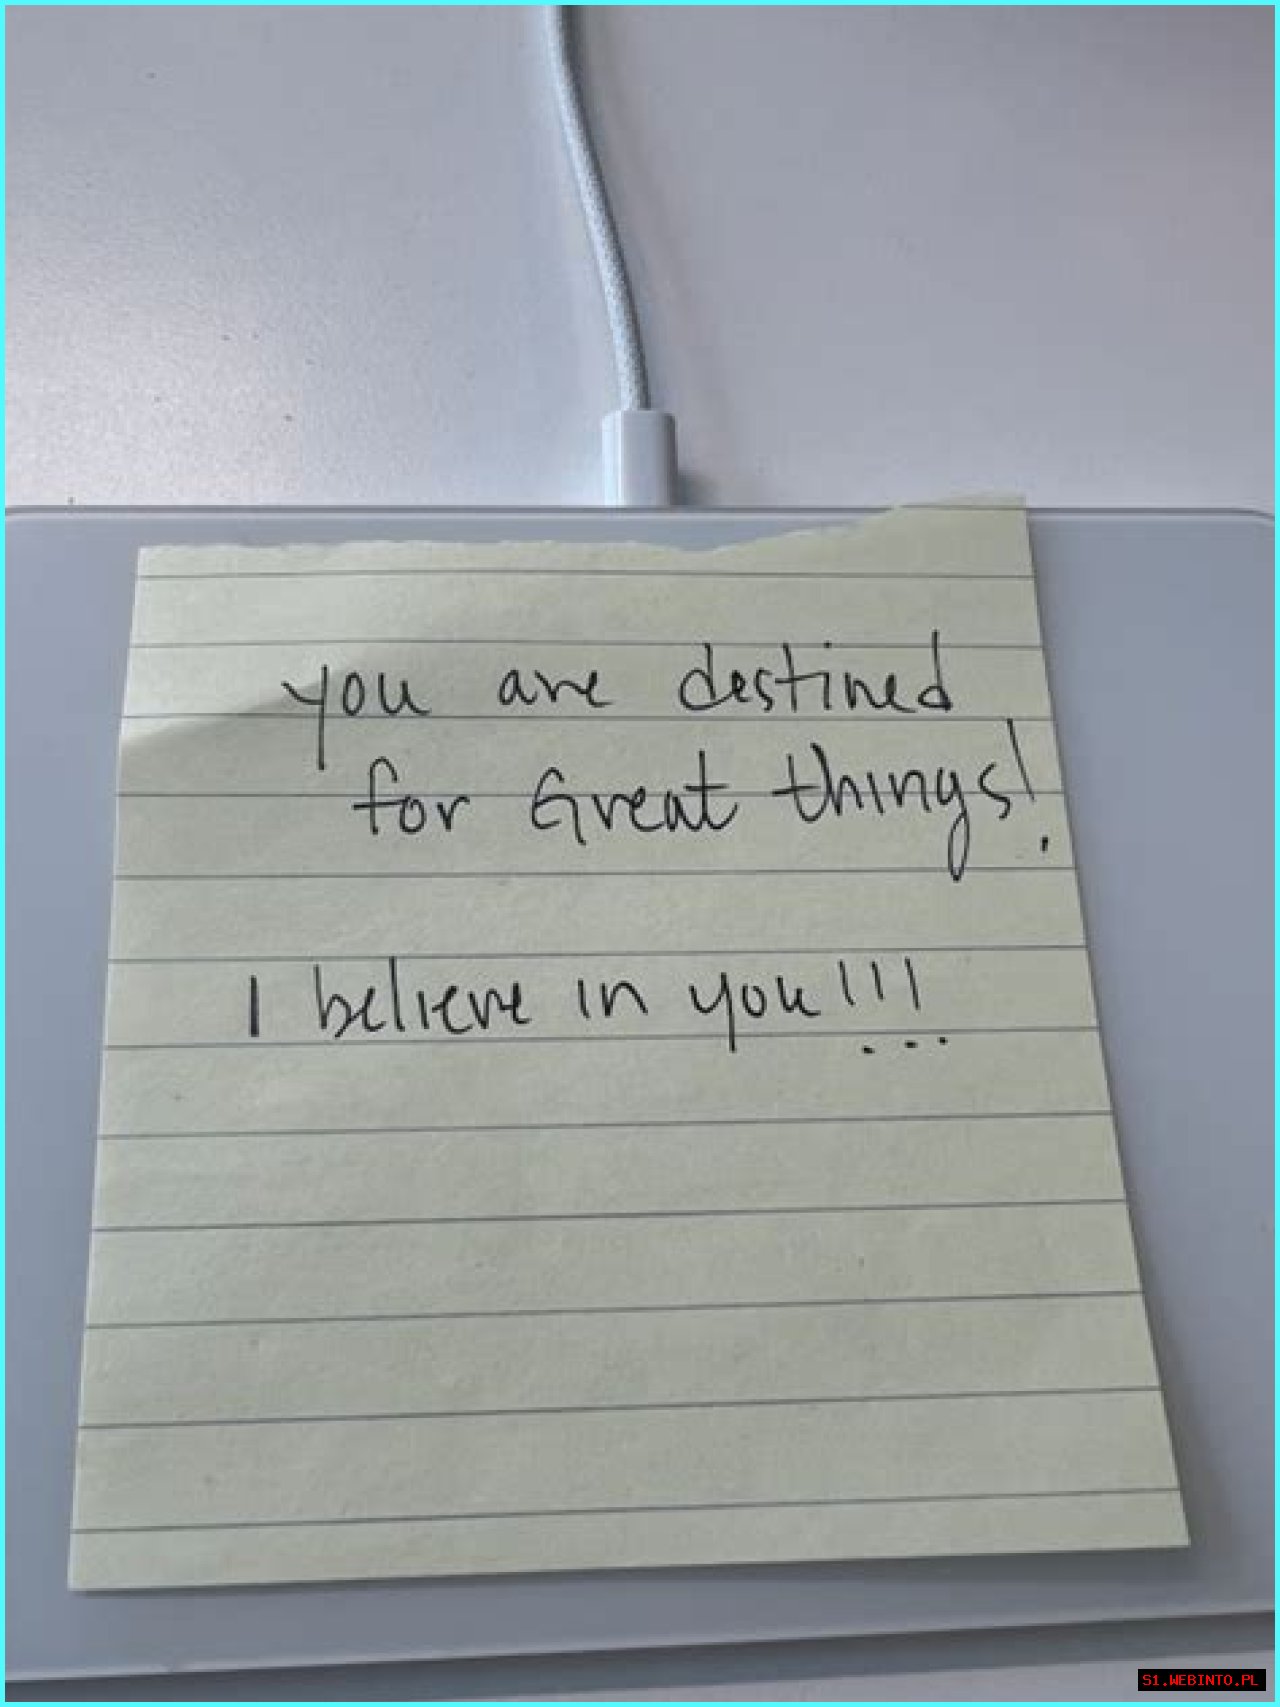 you are destined
for Great things!
I believe in you!!!
S1.WEBINTO.PL